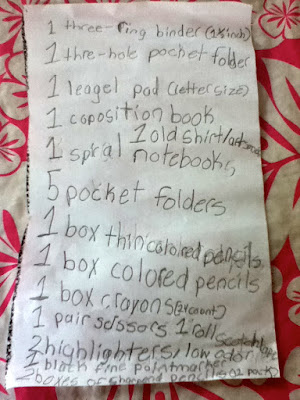 1 three-ring binder (1½ inch)
1 thre-hole pocket folder
1 leagel pad (letter size)
1 coposition book
1 old shirt/art
1 spiral notebooks
5 pocket folders
1 box thin colored pencils
1 box colored pencils
1 box crayons (24 count)
1 pair scissors 1 roll scotch
2 highlighters, low odor
2 black fine point marker
2 boxes of sharpend pencils (12 pack)